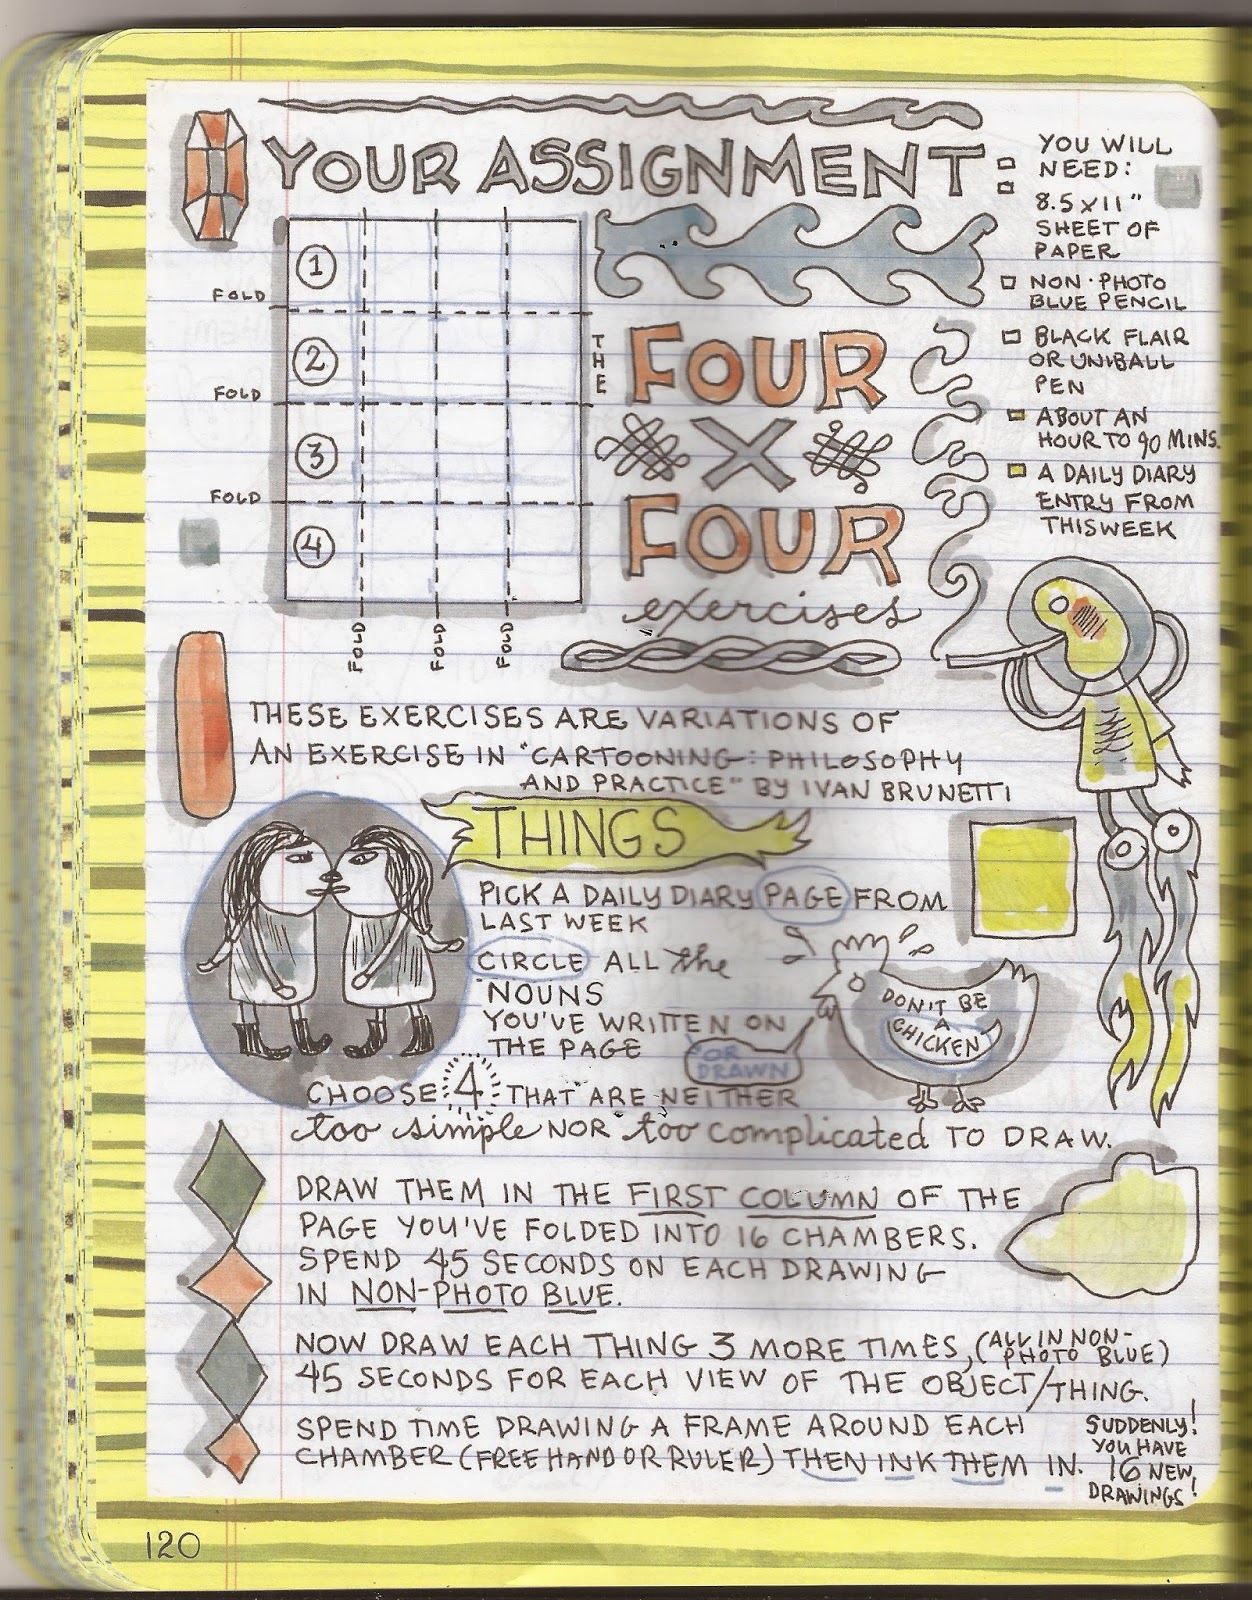 YOUR ASSIGNMENT:
YOU WILL
NEED:
8.5 x 11"
SHEET OF
PAPER
NON·PHOTO
BLUE PENCIL
BLACK FLAIR
OR UNIBALL
PEN
ABOUT AN
HOUR TO 90 MINS.
A DAILY DIARY
ENTRY FROM
THIS WEEK
1
FOLD
2
FOLD
3
FOLD
4
FOLD FOLD FOLD
THE
FOUR
X
FOUR
exercises
THESE EXERCISES ARE VARIATIONS OF
AN EXERCISE IN "CARTOONING: PHILOSOPHY
AND PRACTICE" BY IVAN BRUNETTI
THINGS
PICK A DAILY DIARY PAGE FROM
LAST WEEK
CIRCLE ALL the
NOUNS
YOU'VE WRITTEN ON
THE PAGE
OR
DRAWN
DON'T BE
A
CHICKEN
CHOOSE 4 THAT ARE NEITHER
too simple NOR too complicated TO DRAW.
DRAW THEM IN THE FIRST COLUMN OF THE
PAGE YOU'VE FOLDED INTO 16 CHAMBERS.
SPEND 45 SECONDS ON EACH DRAWING
IN NON-PHOTO BLUE.
NOW DRAW EACH THING 3 MORE TIMES, (ALL IN NON-
PHOTO BLUE)
45 SECONDS FOR EACH VIEW OF THE OBJECT/THING.
SPEND TIME DRAWING A FRAME AROUND EACH
CHAMBER (FREEHAND OR RULER) THEN INK THEM IN.
SUDDENLY!
YOU HAVE
16 NEW
DRAWINGS!
120